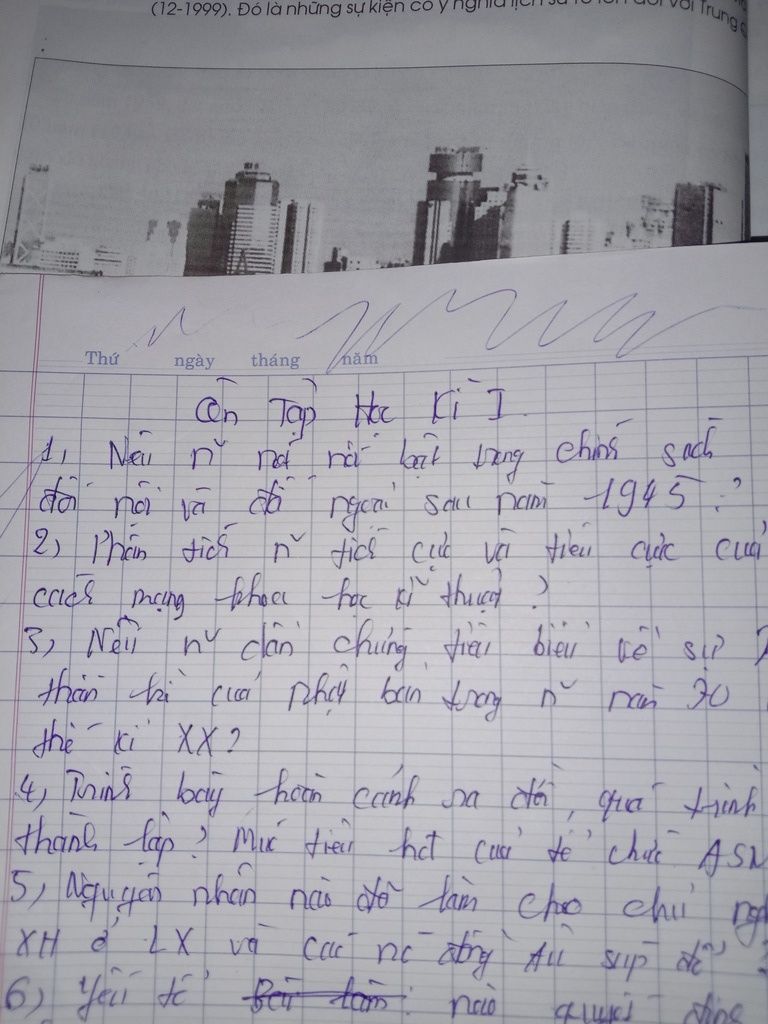 (12-1999). Đó là những sự kiện có ý nghĩa lịch sử to lớn đối với Trung
Thứ ngày tháng năm
Ôn Tập Học Kì I
1, Nêu n~ nét nổi bật trong chính sách
đối nội và đối ngoại sau năm 1945 ?
2) Phân tích n~ tích cực và tiêu cực của
cách mạng khoa học kĩ thuật ?
3, Nêu n~ dẫn chứng tiêu biểu về sự
thần kì của nhật bản trong n~ năm 70
thế kỉ XX ?
4, Trình bày hoàn cảnh ra đời, quá trình
thành lập ? Mục tiêu hđ của tổ chức
5, Nguyên nhân nào đã làm cho chủ
XH ở LX và các nc đông Âu sụp đổ
6) Yếu tố nào quyết định